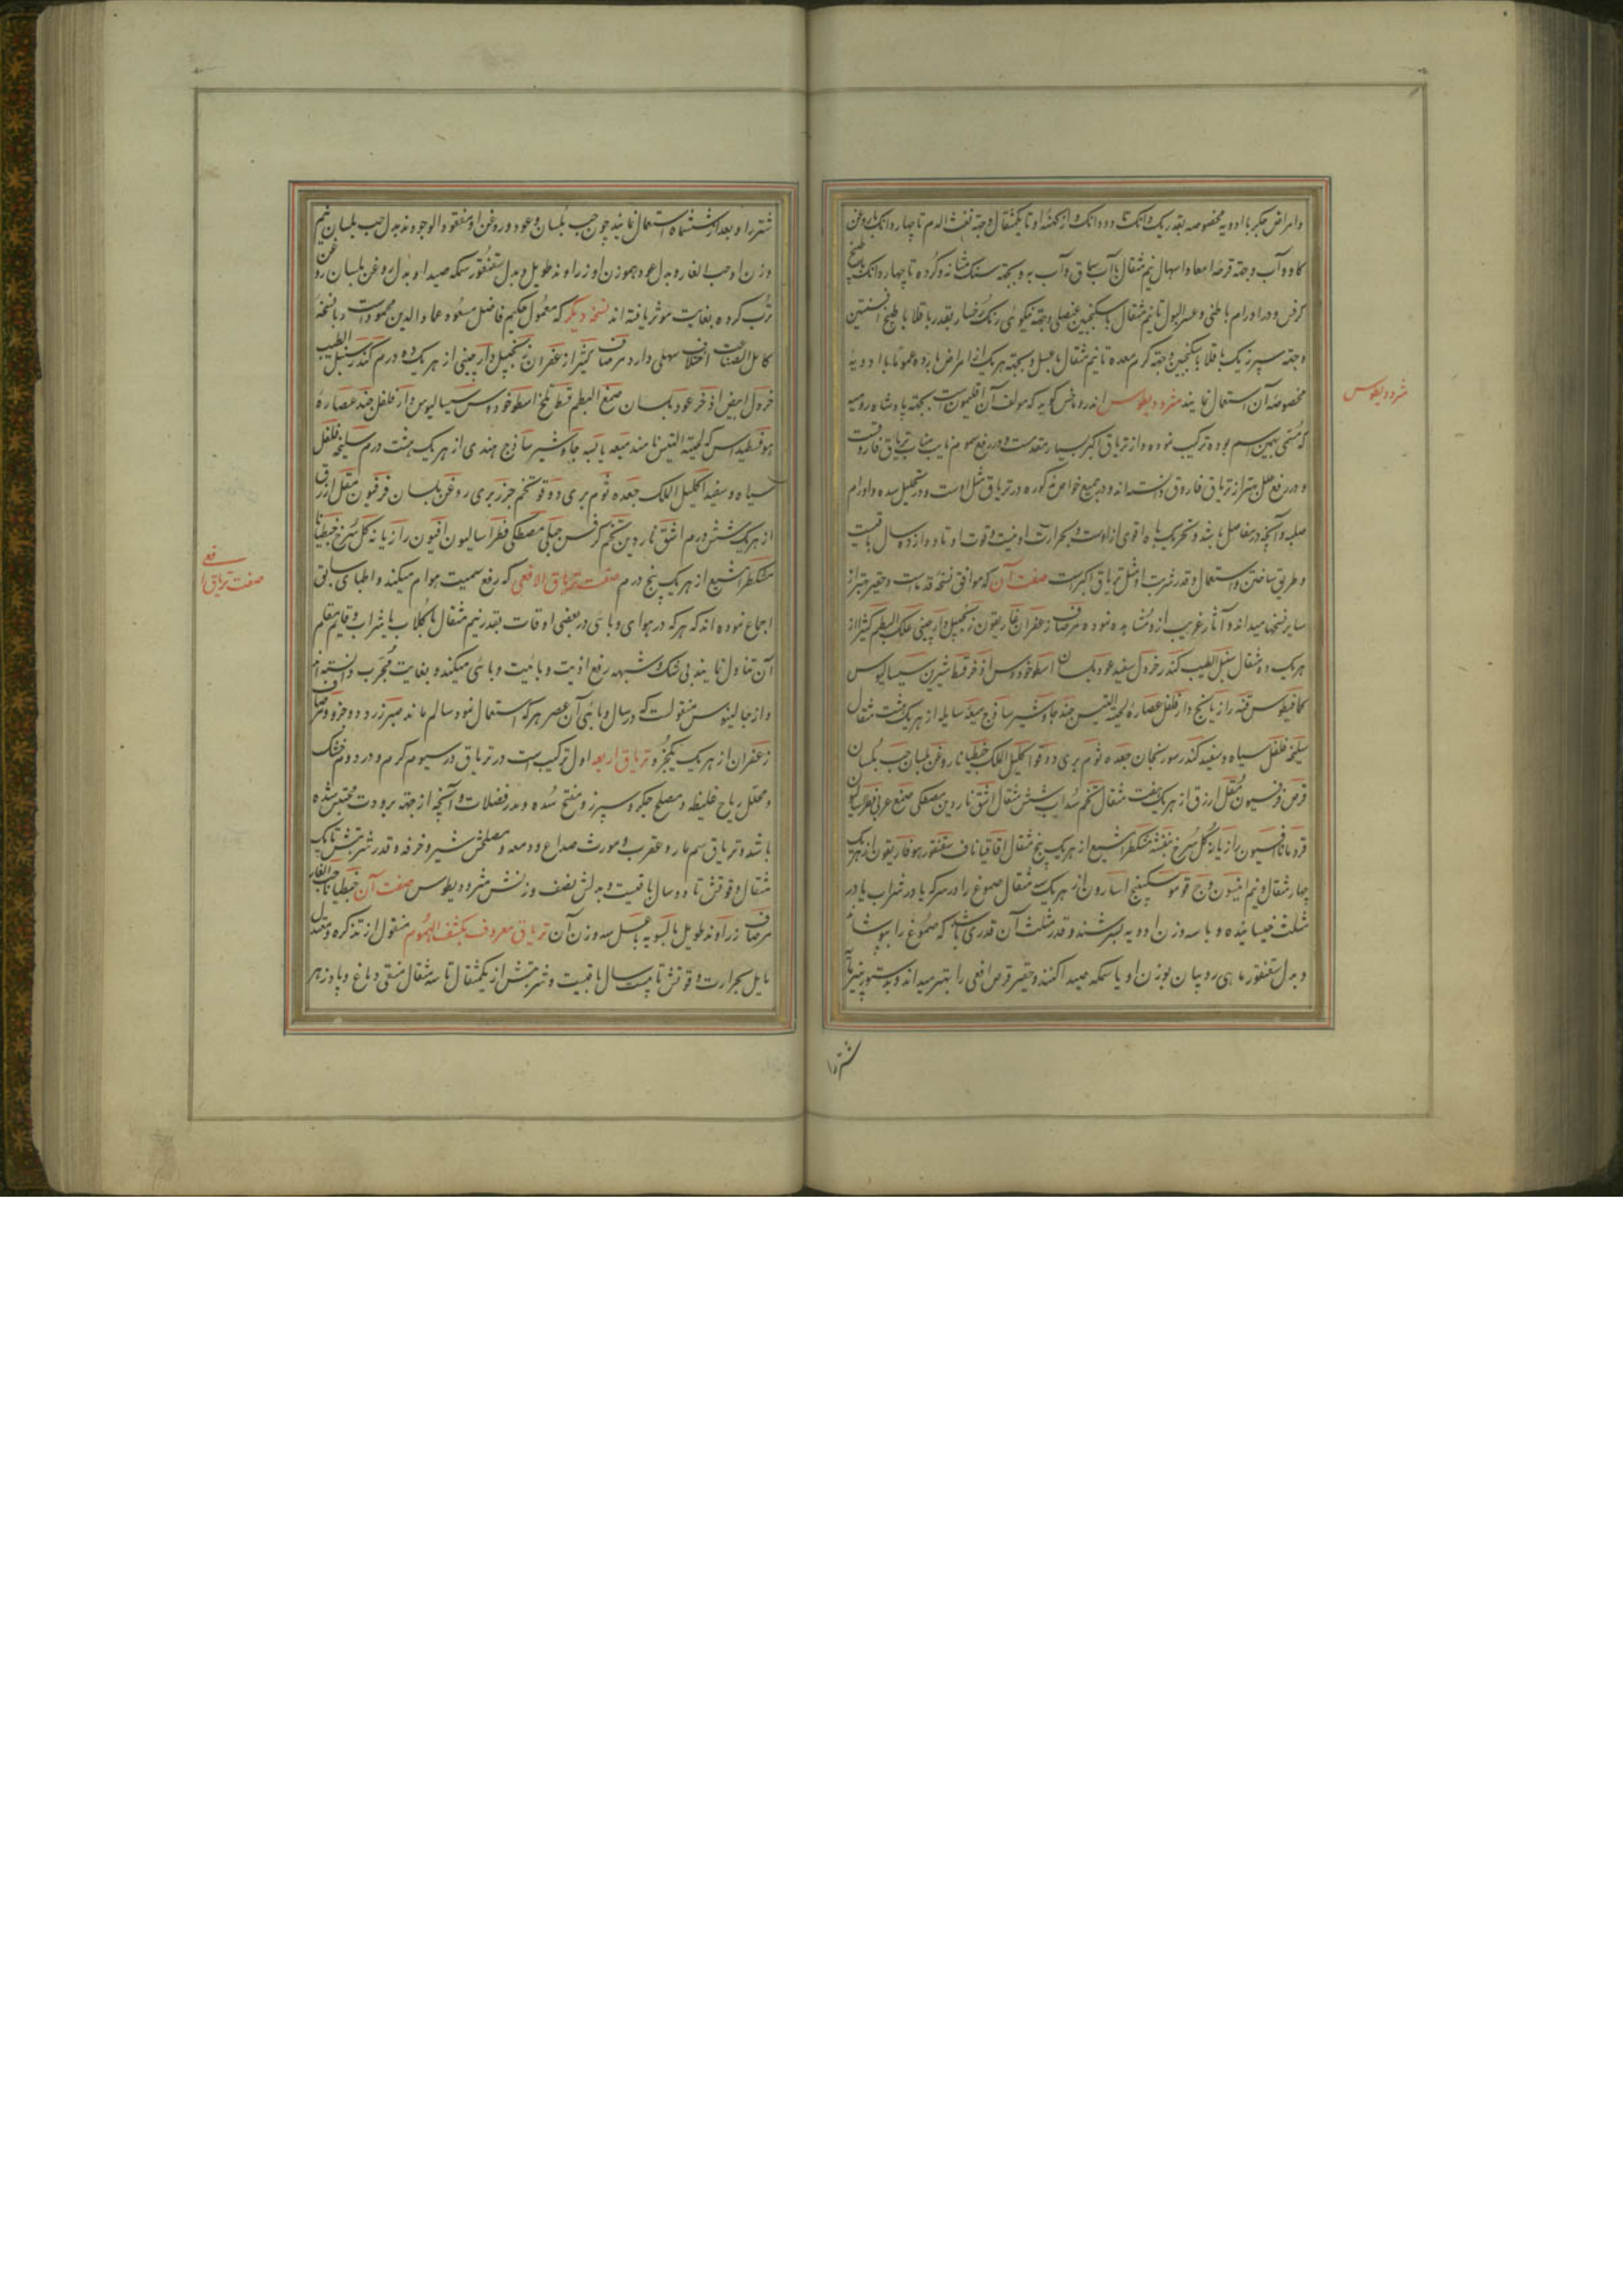 وامراض جگر با ادویه مخصوصه بقدر یک دانک تا دو دانک و از کهنه او تا یکمثقال و جهته نفث الدم تا چهار دانک با روغن
کاو و آب و جهته قرحه امعا و اسهال نیم مثقال با آب سماق و آب به و بجهته سنک مثانه و کرده تا چهار دانک با طبیخ
کرفس و در اورام باطنی و عسر البول تا نیم مثقال با سکنجبین عنصلی و جهته نیکوئی رنک رخسار بقدر باقلا با طبیخ افسنتین
و جهته سپرز یک باقلا با سکنجبین و جهته کرم معده تا نیم مثقال با عسل و بجهته هر یک از امراض بارده عموما با ادویه
مخصوصه آن استعمال نمایند مثرودیطوس اندروماخس کوید که مولف آن اقلیمون است بجهته پادشاه رومیه
که مسمی بهمین اسم بوده ترکیب نموده و از تریاق اکبر بسیار مقدمست و در رفع سموم نایب مناب تریاق فاروقست
و در رفع علل بهتر از تریاق فاروق دانسته اند و در جمیع خواص مذکوره در تریاق مثل اوست و در تحلیل سده و اورام
صلبه و آنچه در مفاصل باشد و تحریک باه اقوی از اوست و بحرارت او نیست و قوت او تا دوازده سال باقیست
و طریق ساختن و استعمال و قدر شربت او مثل تریاق اکبر است صفت آن که موافق نسخه قدماست و حقیر بهتر از
سایر نسخها میداند و آثار غریب از و مشاهده نموده مرصاف زعفران غاریقون زنجبیل دارچینی علک البطم کثیرا از
هر یک ده مثقال سنبل الطیب کندر خردل سفید عود بلسان اسطوخودوس اذخر قسط شیرین سیسالیوس
کمافیطوس قنه رازیانج دارفلفل عصاره لحیة التیس جند جاوشیر ساذج میعه سایله از هر یک هشت مثقال
سلیخه فلفل سیاه و سفید کندر سورنجان جعده ثوم بری دوقو اکلیل الملک جنطیانا روغن بلسان حب بلسان
قرص قرفسیون مقل ارزق از هر یک هفت مثقال تخم سداب شش مثقال اشق ناردین مصطکی صمغ عربی فطراسالیون
قردمانا افسیون رازیانه کل سرخ بنفشه مشکطرامشیع از هر یک پنج مثقال اقاقیا ناف سقنقور هوفاریقون از هر یک
چهار مثقال و نیم انیسون وج فو مو سکبینج اسارون از هر یک سه مثقال صموغ را در سرکه یا در شراب یا در
مثلث خیسانیده و با سه وزن ادویه بسرشند و قدر مثلث آن قدری باشد که صموغ را بپوشاند
و بدل سقنقور ماهی روبیان بوزن او یا سمکه صیدا کنند و حقیر قرص افعی را بهتر میداند و بدستور پنیر مایه
شتر را
مثرودیطوس
شتر را و بعد از ششماه استعمال نمایند چون حب بلسان و عود و روغن او مفقود الوجودند بدل حب بلسان نیم
وزن او حب الغار و بدل عود هموزن او زراوند طویل و بدل سقنقور سمکه صیدا و بدل روغن بلسان روغن
ترب کرده بغایت موثر یافته اند نسخه دیکر که معمول حکیم فاضل مسعود عماد الدین محمود است و با نسخه
کامل الصناعت اختلاف سهلی دارد مرصاف کثیرا زعفران زنجبیل دارچینی از هر یک ده درم کندر سنبل الطیب
خردل ابیض اذخر عود بلسان صمغ البطم قسط تلخ اسطوخودوس سیسالیوس دارفلفل جند عصاره
هوفسطیداس که لحیة التیس نامند میعه یابسه جاوشیر ساذج هندی از هر یک هشت درم سلیخه فلفل
سیاه و سفید اکلیل الملک جعده ثوم بری دوقو تخم جزر بری روغن بلسان قرفیون مقل ازرق
از هر یک شش درم اشق ناردین تخم کرفس جبلی مصطکی فطراسالیون افیون رازیانه کل سرخ جنطیانا
مشکطرامشیع از هر یک پنج درم صفت تریاق الافعی که رفع سمیت هوام میکند و اطبای سابق
اجماع نموده اند که هر که در هوای وبائی در بعضی اوقات بقدر نیم مثقال با کلاب یا شراب و قایم مقام
آن تناول نمایند بی شک و شبهه رفع اذیت و بائیت وبائی میکند و بغایت مجرب دانسته اند
و از جالینوس منقولست که در سال وبائی آن عصر هر که استعمال نمود سالم ماند صبر زرد دو جزو مرصاف
زعفران از هر یک یکجزو تریاق اربعه اول ترکیب است در تریاق در سیوم کرم و در دوم خشک
و محلل ریاح غلیظه و مصلح جکر و سپرز و مفتح سده و مدر فضلات و آنچه از جهته برودت محتبس شده
باشد و تریاق سم مار و عقرب و مورث صداع و دمعه و مصلحش شیر و خرفه و قدر شربتش تا یک
مثقال و قوتش تا دو سال باقیست و بدلش نصف وزنش مثرودیطوس صفت آن جنطیانا حب الغار
مرصاف زراوند طویل بالسویه با عسل سه وزن آن تریاق معروف بکشف الهموم منقول از تذکره و معتدل
مایل بحرارت و قوتش تا بیست سال باقیست و شربتش از یکمثقال تا سه مثقال منقی دماغ و پادزهر
صفت تریاق
افعی